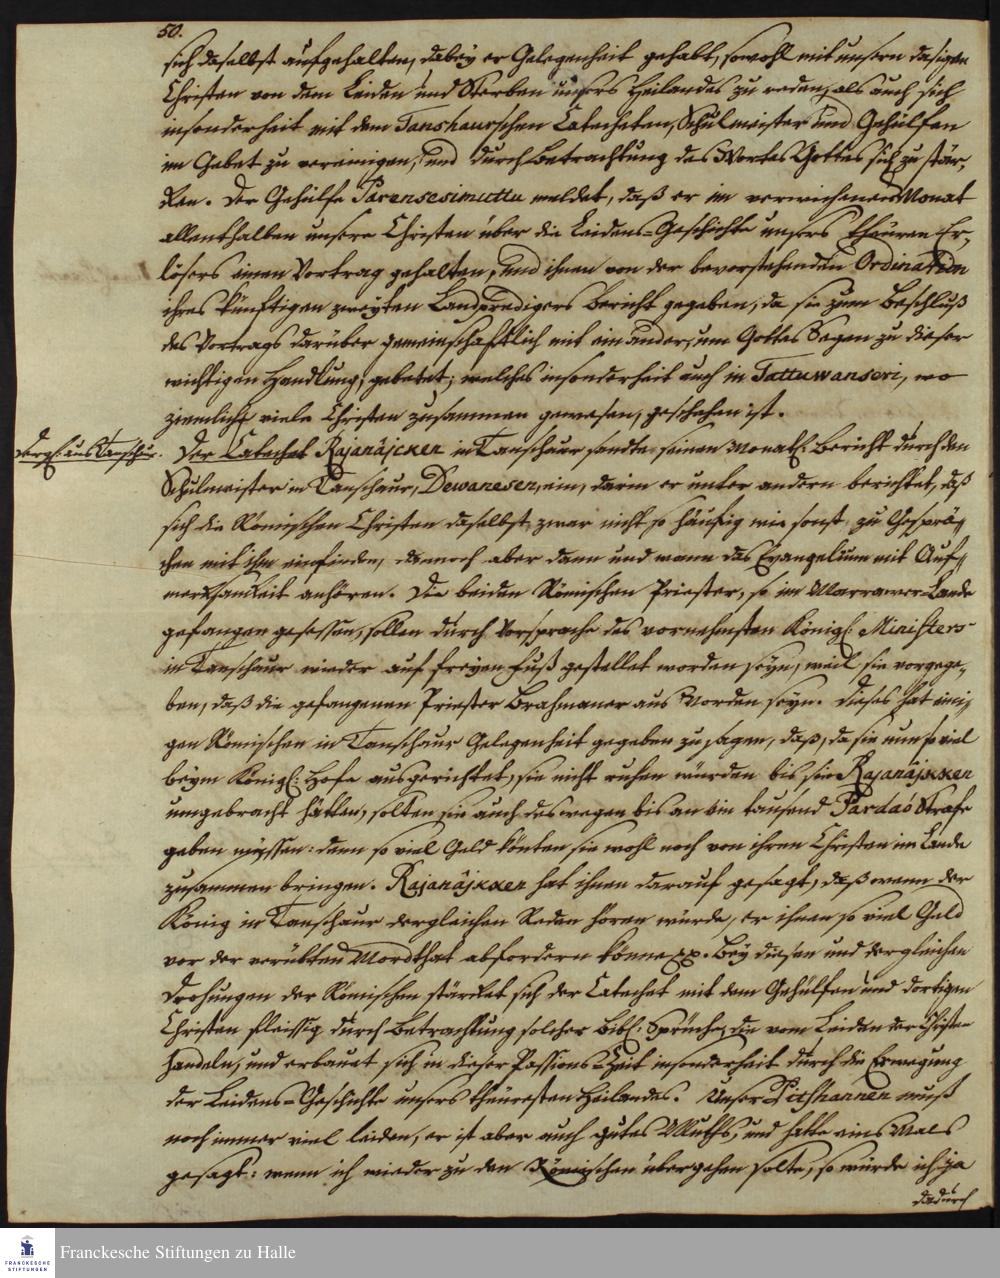 50.
sich daselbst aufgehalten, dabey er Gelegenheit gehabt, sowohl mit unsern dasigen
Christen von dem Leiden und Sterben unsers Heilandes zu reden, als auch sich
insonderheit mit dem Tanschaurschen Catecheten, Schulmeister und Gehülfen
im Gebet zu vereinigen, und durch Betrachtung des Wortes Gottes sich zu stär,
ken. Der Gehülfe Parensesimuttu meldet, daß er im verwichenen Monat
allenthalben unsere Christen über die Leidens-Geschichte unsers theuren Er,
lösers einen Vortrag gehalten, und ihnen von der bevorstehenden Ordination
ihres künftigen zweyten Landpredigers Bericht gegeben, da sie zum Beschluß
des Vortrags darüber gemeinschaftlich mit einander, um Gottes Segen zu dieser
wichtigen Handlung, gebetet; welches insonderheit auch in Tattuwanseri, wo
ziemlich viele Christen zusammen gewesen, geschehen ist.
Dergl. aus Tanschaur.
Der Catechet Rajanâjcken in Tanschaur sandte seinen Monatl. Bericht durch den
Schulmeister in Tanschaur, Dewanesen, ein, darin er unter andern berichtet, daß
sich die Römischen Christen daselbst zwar nicht so häufig wie sonst zu Gesprä,
chen mit ihm einfinden, dennoch aber dann und wann das Evangelium mit Auf,
merksamkeit anhören. Die beiden Römischen Priester, so im Marrawer-Lande
gefangen gesessen, sollen durch Vorsprache des vornehmsten Königl. Ministers
in Tanschaur wieder auf freyen Fuß gestellet worden seyn, weil sie vorgege,
ben, daß die gefangenen Priester Brahmaner aus Norden seyn. Dieses hat eini,
gen Römischen in Tanschaur Gelegenheit gegeben zu sagen, daß, da sie nun so viel
beym Königl. Hofe ausgerichtet, sie nicht ruhen würden bis sie Rajanâjkken
umgebracht hätten, solten sie auch deswegen bis an die tausend Pardao Strafe
geben müssen: denn so viel Geld könten sie wohl noch von ihren Christen im Lande
zusammen bringen. Rajanâjkken hat ihnen darauf gesagt, daß wenn der
König in Tanschaur dergleichen Reden hören würde, er ihnen so viel Geld
vor der verübten Mordthat abfordern könne pp. Bey diesen und dergleichen
Drohungen der Römischen stärcket sich der Catechet mit dem Gehülfen und dortigen
Christen fleissig durch Betrachtung solcher Bibl. Sprüche, die vom Leiden der Christen
handeln, und erbauet sich in dieser Passions-Zeit insonderheit durch die Erwegung
der Leidens-Geschichte unsers theuresten Heilandes. Unser Pitschannen muß
noch immer viel leiden, er ist aber auch gutes Muths, und hatte eins Mals
gesagt: wenn ich wieder zu den Römischen übergehen solte, so würde ich ja
dadurch
FRANCKESCHE
STIFTUNGEN
Franckesche Stiftungen zu Halle